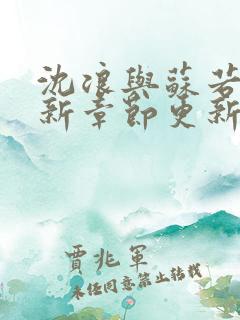 沈浪與蘇若
新章節更新
賈兆軍
未經同意禁止轉載